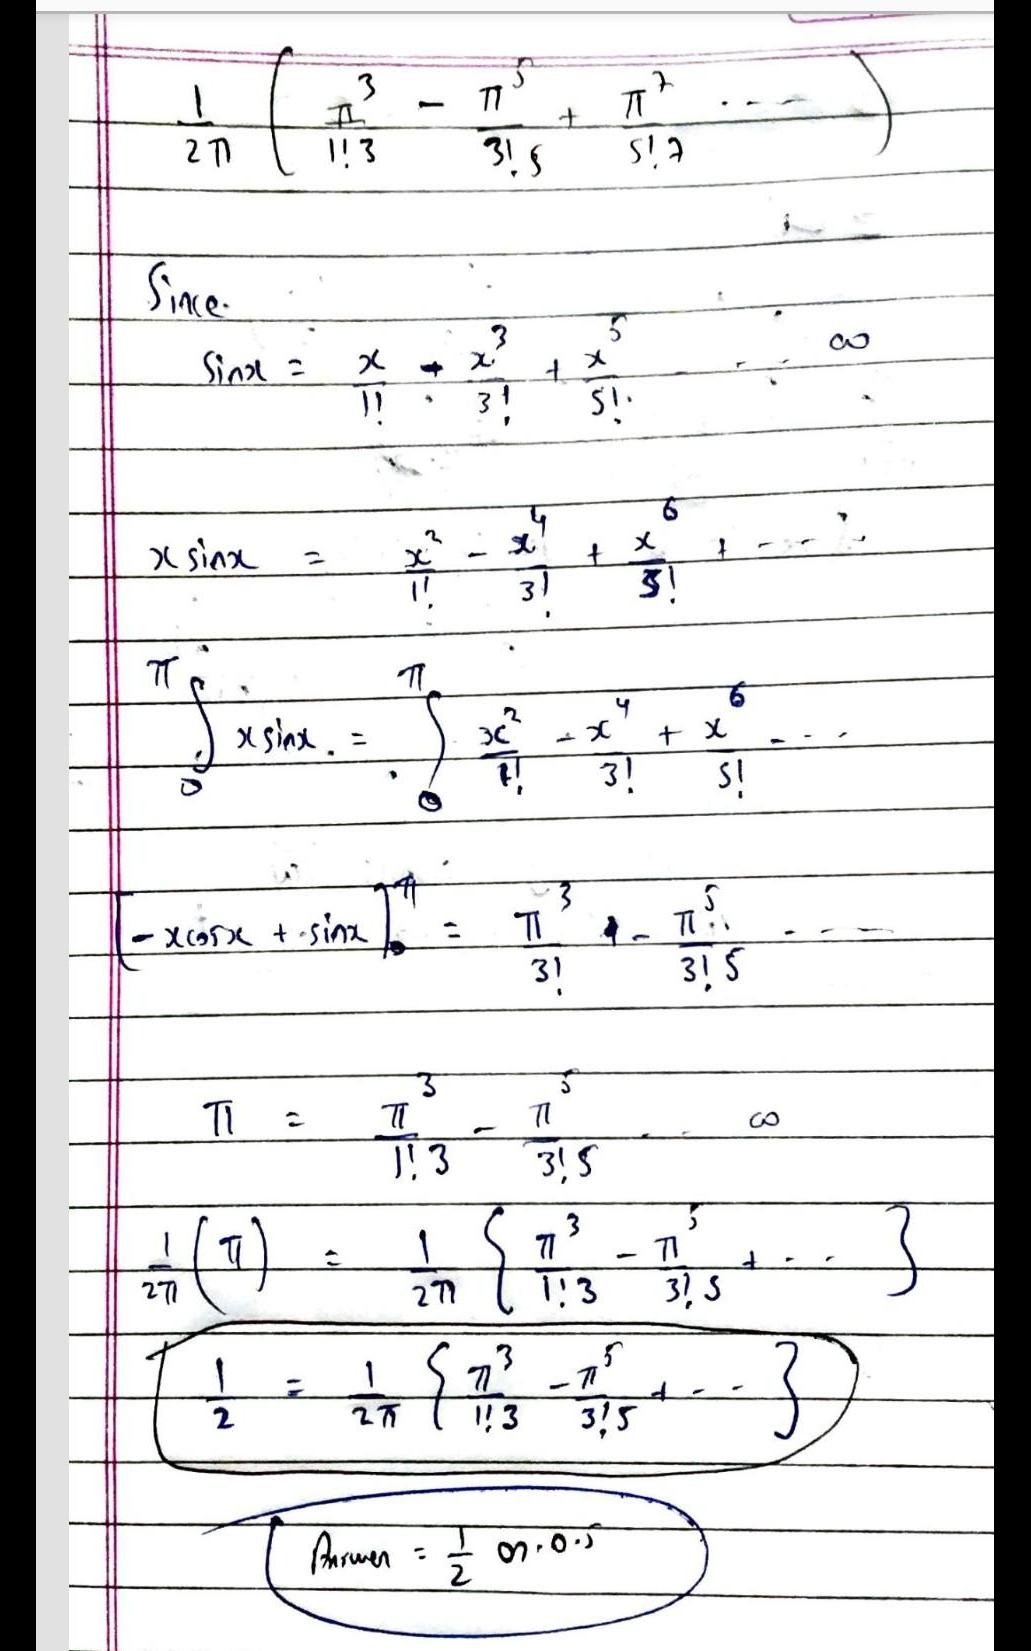 1/2π ( π³/1!3 - π⁵/3!5 + π⁷/5!7 ---- )
Since.
Sinx = x/1! - x³/3! + x⁵/5! - -- ∞
x sinx = x²/1! - x⁴/3! + x⁶/5! + ---
∫₀^π x sinx. = ∫₀^π x²/1! - x⁴/3! + x⁶/5! ---
[-xcosx + sinx]₀^π = π³/3! - π⁵/3!5 - ---
π = π³/1!3 - π⁵/3!5 -- ∞
1/2π (π) = 1/2π { π³/1!3 - π⁵/3!5 + -- }
1/2 = 1/2π { π³/1!3 - π⁵/3!5 + -- }
Answer = 1/2 or 0.5